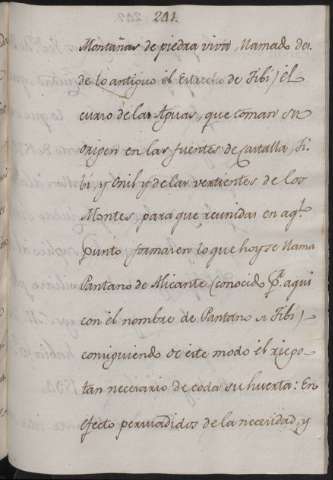 201.
Montañas de piedra viva, llamado des
de lo antiguo el Estrecho de Tibi) el
curso de las Aguas, que toman su
origen en las fuentes de Castalla, Ti-
bi, y Onil y de las vertientes de los
Montes, para que reunidas en aql.
punto formasen lo que hoy se llama
Pantano de Alicante (conocido pr. aqui
con el nombre de Pantano de Tibi)
consiguiendo de este modo el riego
tan necesario de toda su huerta: En
efecto persuadidos de la necesidad, y